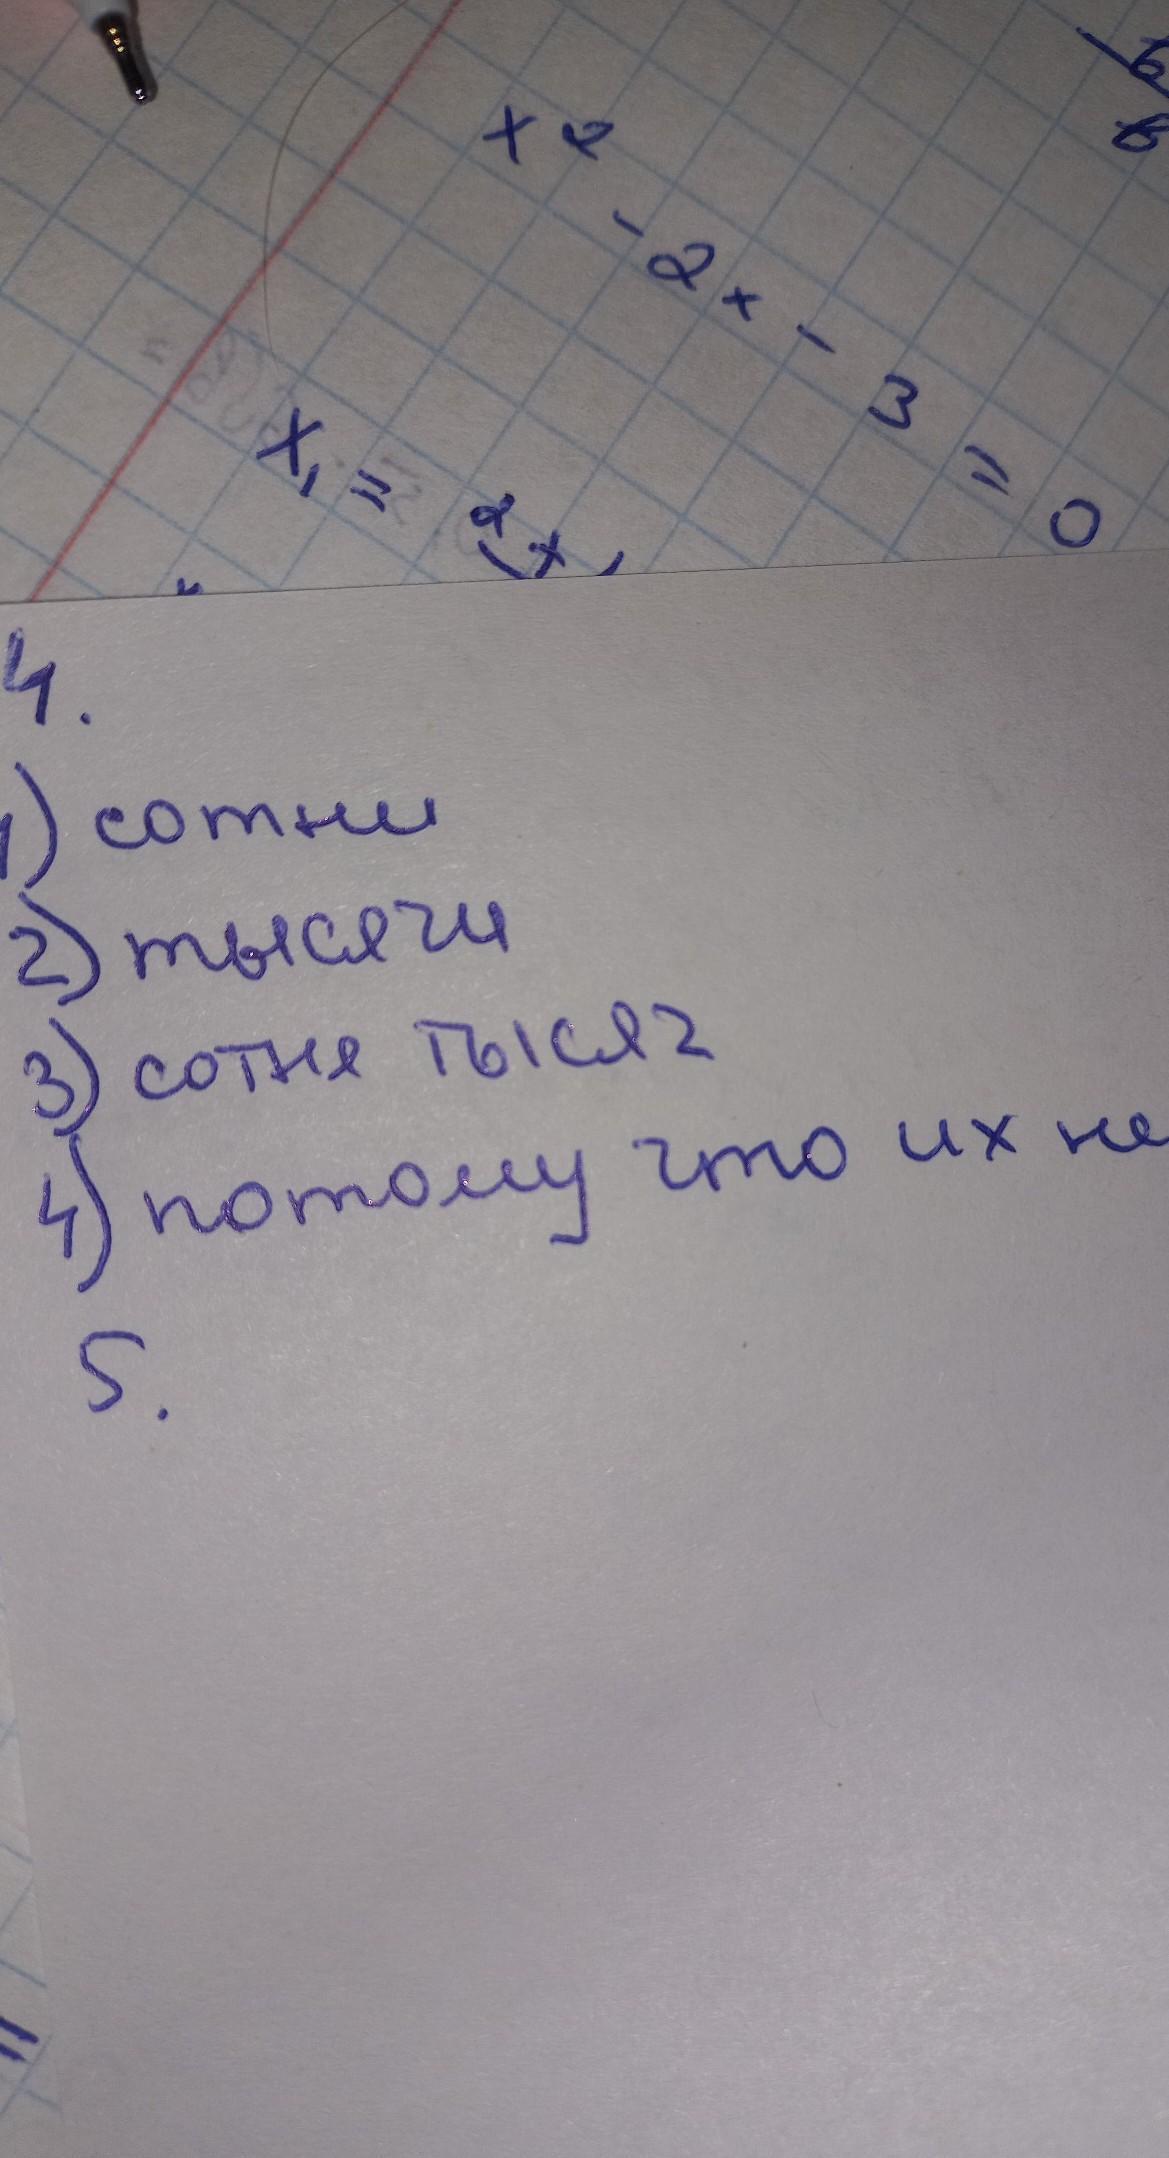 x²
-2x - 3 = 0
x₁ = 2
4.
1) сотни
2) тысячи
3) сотня тысяч
4) потому что их не
5.
=